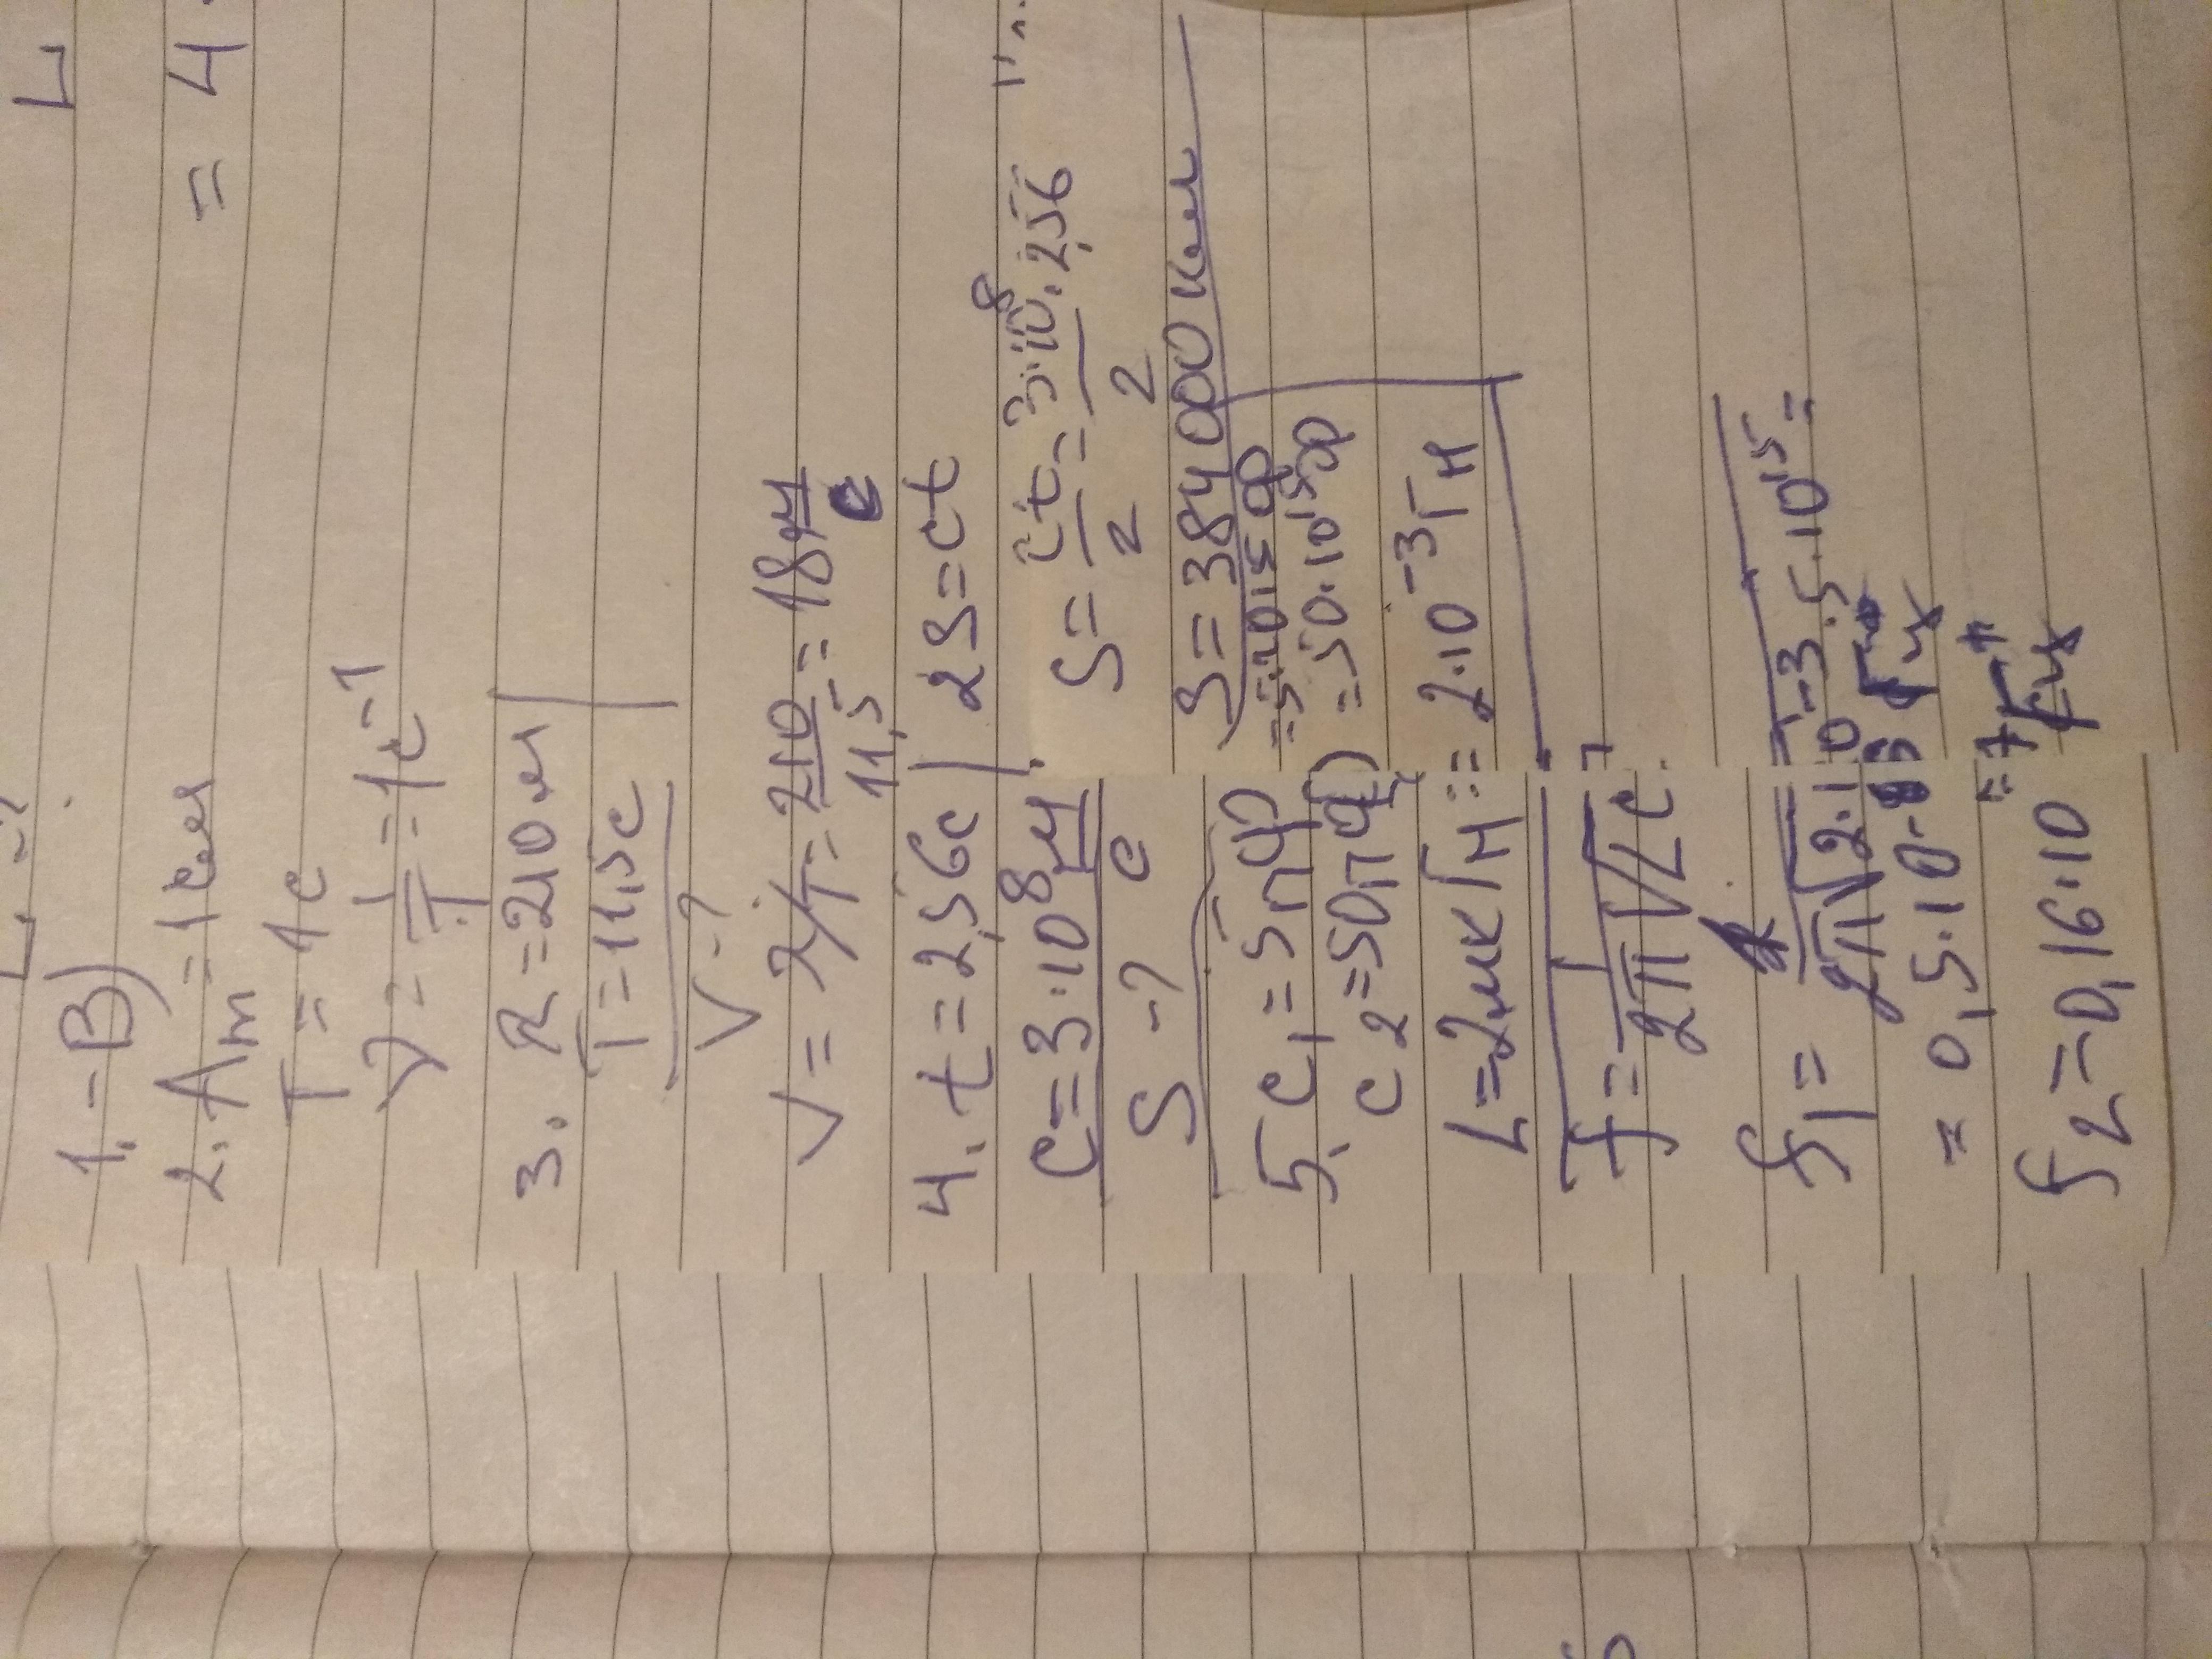 1. - B)
2. Am = 1 см
T = 1c
ν = 1/T = 1c⁻¹
3. λ = 210 м
T = 11,5c
V - ?
V = λ/T = 210/11,5 = 18 м/c
4. t = 2,56c | 2S = ct
C = 3·10⁸ м/c
S = ct/2 = 3·10⁸·2,56/2
S - ?
S = 384 000 км
5. C₁ = 5пФ = 5·10¹⁵ Ф
C₂ = 50пФ = 50·10¹⁵ Ф
L = 2мкГн = 2·10⁻³ Гн
f = 1/2π√LC
f₁ = 1/2π√2·10⁻³·5·10¹⁵ =
= 0,5·10⁻⁸ Гц
f₂ = 0,16·10⁻⁷ Гц